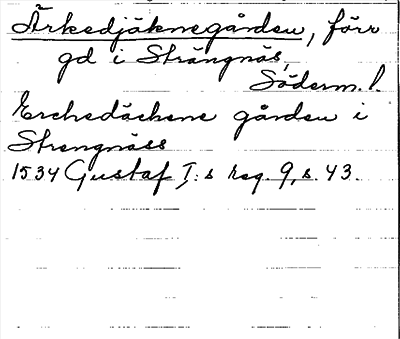 Ärkedjäknegården, förr
gd i Strängnäs,
Söderm. l.
Erchedäckene gården i
Strengnäss
1534 Gustaf I:s reg. 9, s. 43.